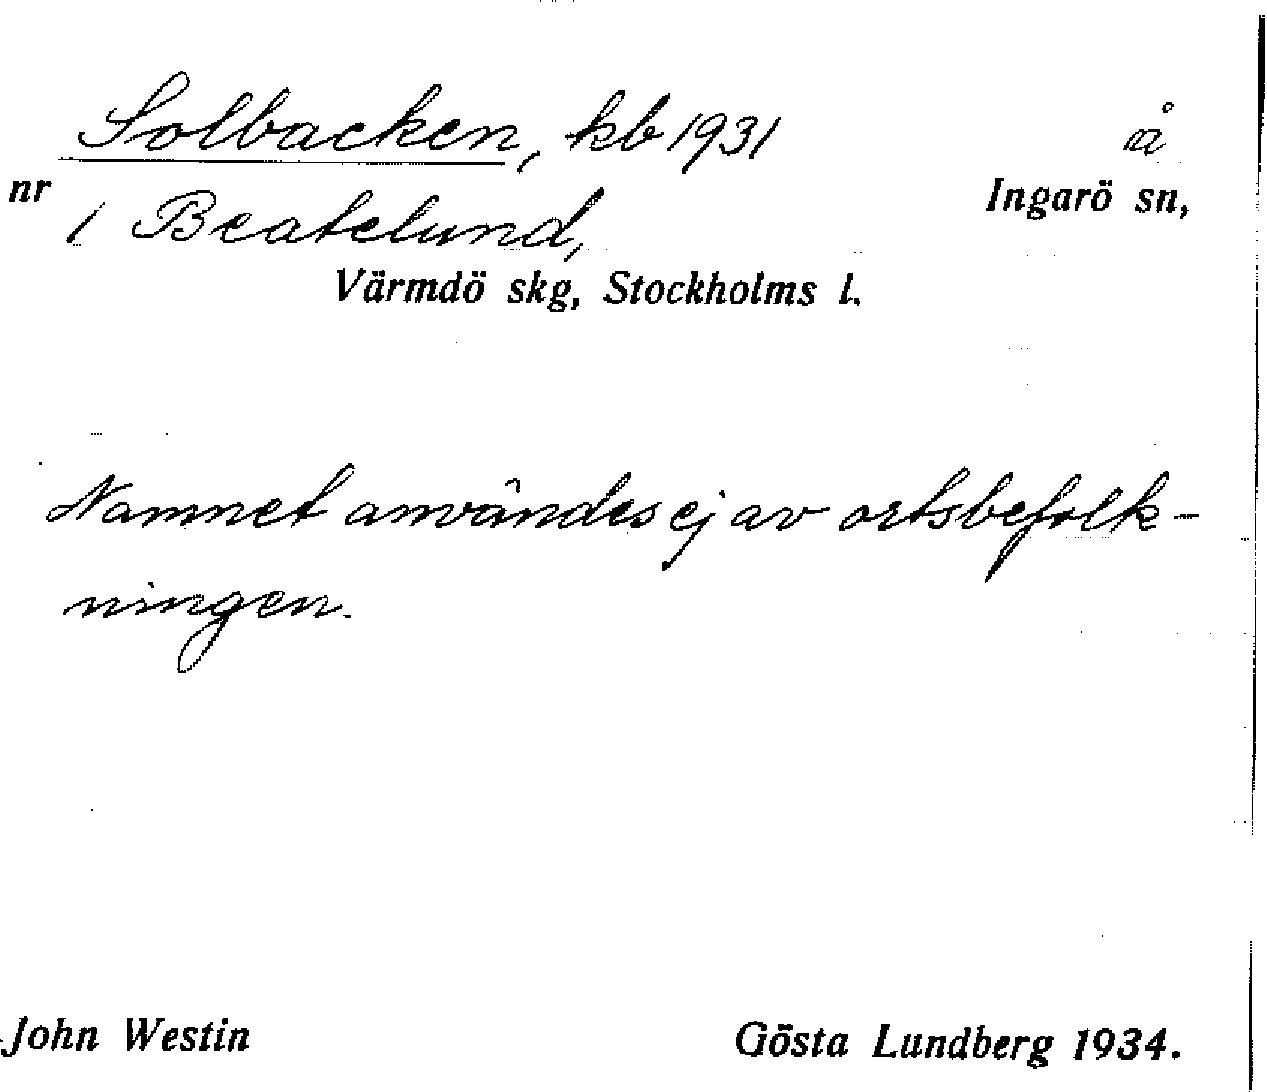 Solbacken, kb 1931 å
nr Ingarö sn,
1 Beatelund,
Värmdö skg, Stockholms l.
Namnet användes ej av ortsbefolk-
ningen.
John Westin Gösta Lundberg 1934.